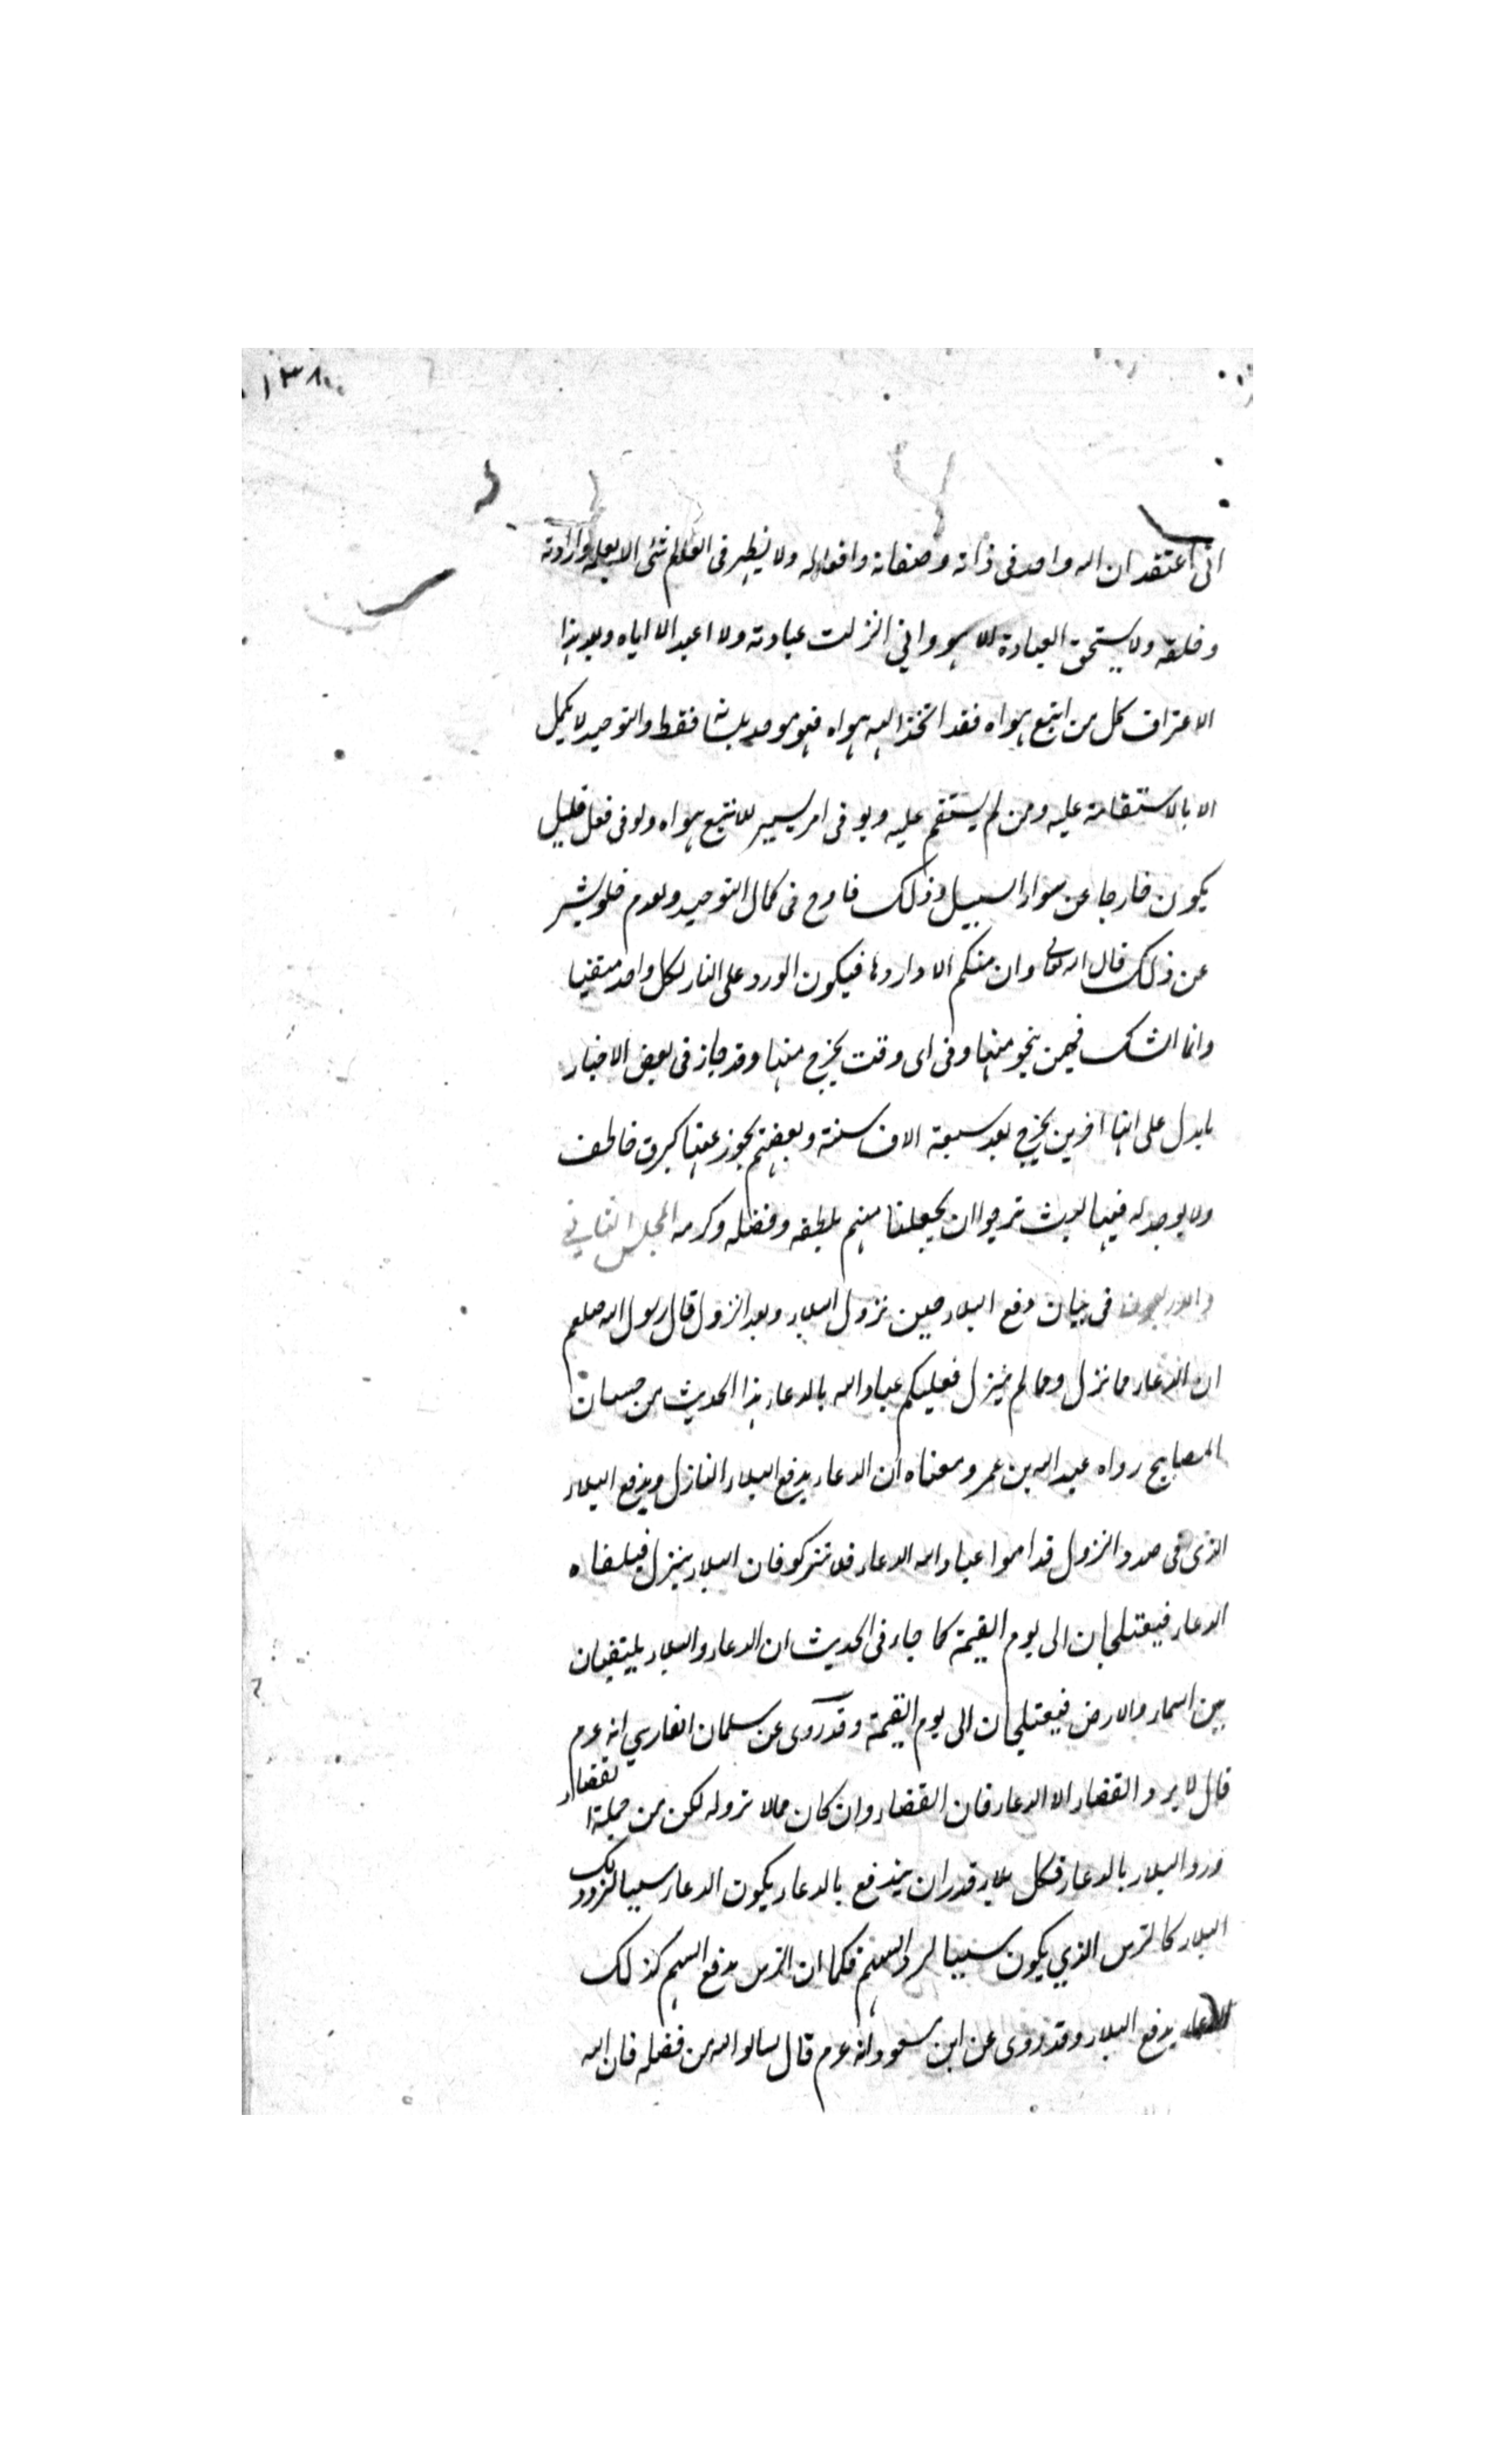 ١٣٨
انى اعتقد ان الله واحد فى ذاته وصفاته وافعاله ولا يظهر فى العالم شئ الا بعلمه وارادته
وخلقه ولا يستحق العبادة الا هو وانى التزلت عبادته ولا اعبد الا اياه وبعد هذا
الاعتراف كل من اتبع هواه فقد اتخذ الهه هواه فهو موحد بلسانه فقط والتوحيد لا يكمل
الا بالاستقامة عليه ومن لم يستقم عليه ولو فى امر يسير للاتبع هواه ولو فى فعل قليل
يكون خارجا عن سواء السبيل وذلك قادح فى كمال التوحيد ولعدم خلو بشر
عن ذلك قال الله تعالى وان منكم الا واردها فيكون الورد على النار لكل واحد متقنيا
وانما الشك فيمن ينجو منها وفى اى وقت يخرج منها وقد جاز فى بعض الاخبار
ما يدل على ان آخر من يخرج بعد سبعة الاف سنة وبعضهم يجوز عنها كبرق خاطف
ولا يوجد له فيها لبث ترجوا ان يجعلنا منهم بلطفه وفضله وكرمه المجلس الثانى
والاربعون فى بيان دفع البلاء حين نزول البلاء وبعد النزول قال رسول الله صلعم
ان الدعاء مما نزل ومما لم ينزل فعليكم عباد الله بالدعاء هذا الحديث من حسان
المصابيح رواه عبد الله بن عمر ومعناه ان الدعاء يدفع البلاء النازل ويدفع البلاء
الذى فى صدد النزول فداموا عباد الله الدعاء فلا تتركو فان البلاء ينزل فيلقاه
الدعاء فيعتلجان الى يوم القيمة كما جاء فى الحديث ان الدعاء والبلاء يلتقيان
بين السماء والارض فيعتلجان الى يوم القيمة وقد روى عن سلمان الفارسي انه عم
قال لا يرد القضاء الا الدعاء فان القضاء وان كان مما لا ترد له لكن من جملة القضاء
ورد البلاء بالدعاء فكل بلاء قدر ان يندفع بالدعاء يكون الدعاء سببا لرد ذلك
البلاء كالترس الذي يكون سببا لرد السهم فكما ان الترس يدفع السهم كذلك
الدعاء يدفع البلاء وقد روى عن ابن مسعود انه عم قال سالوا الله من فضله فان الله